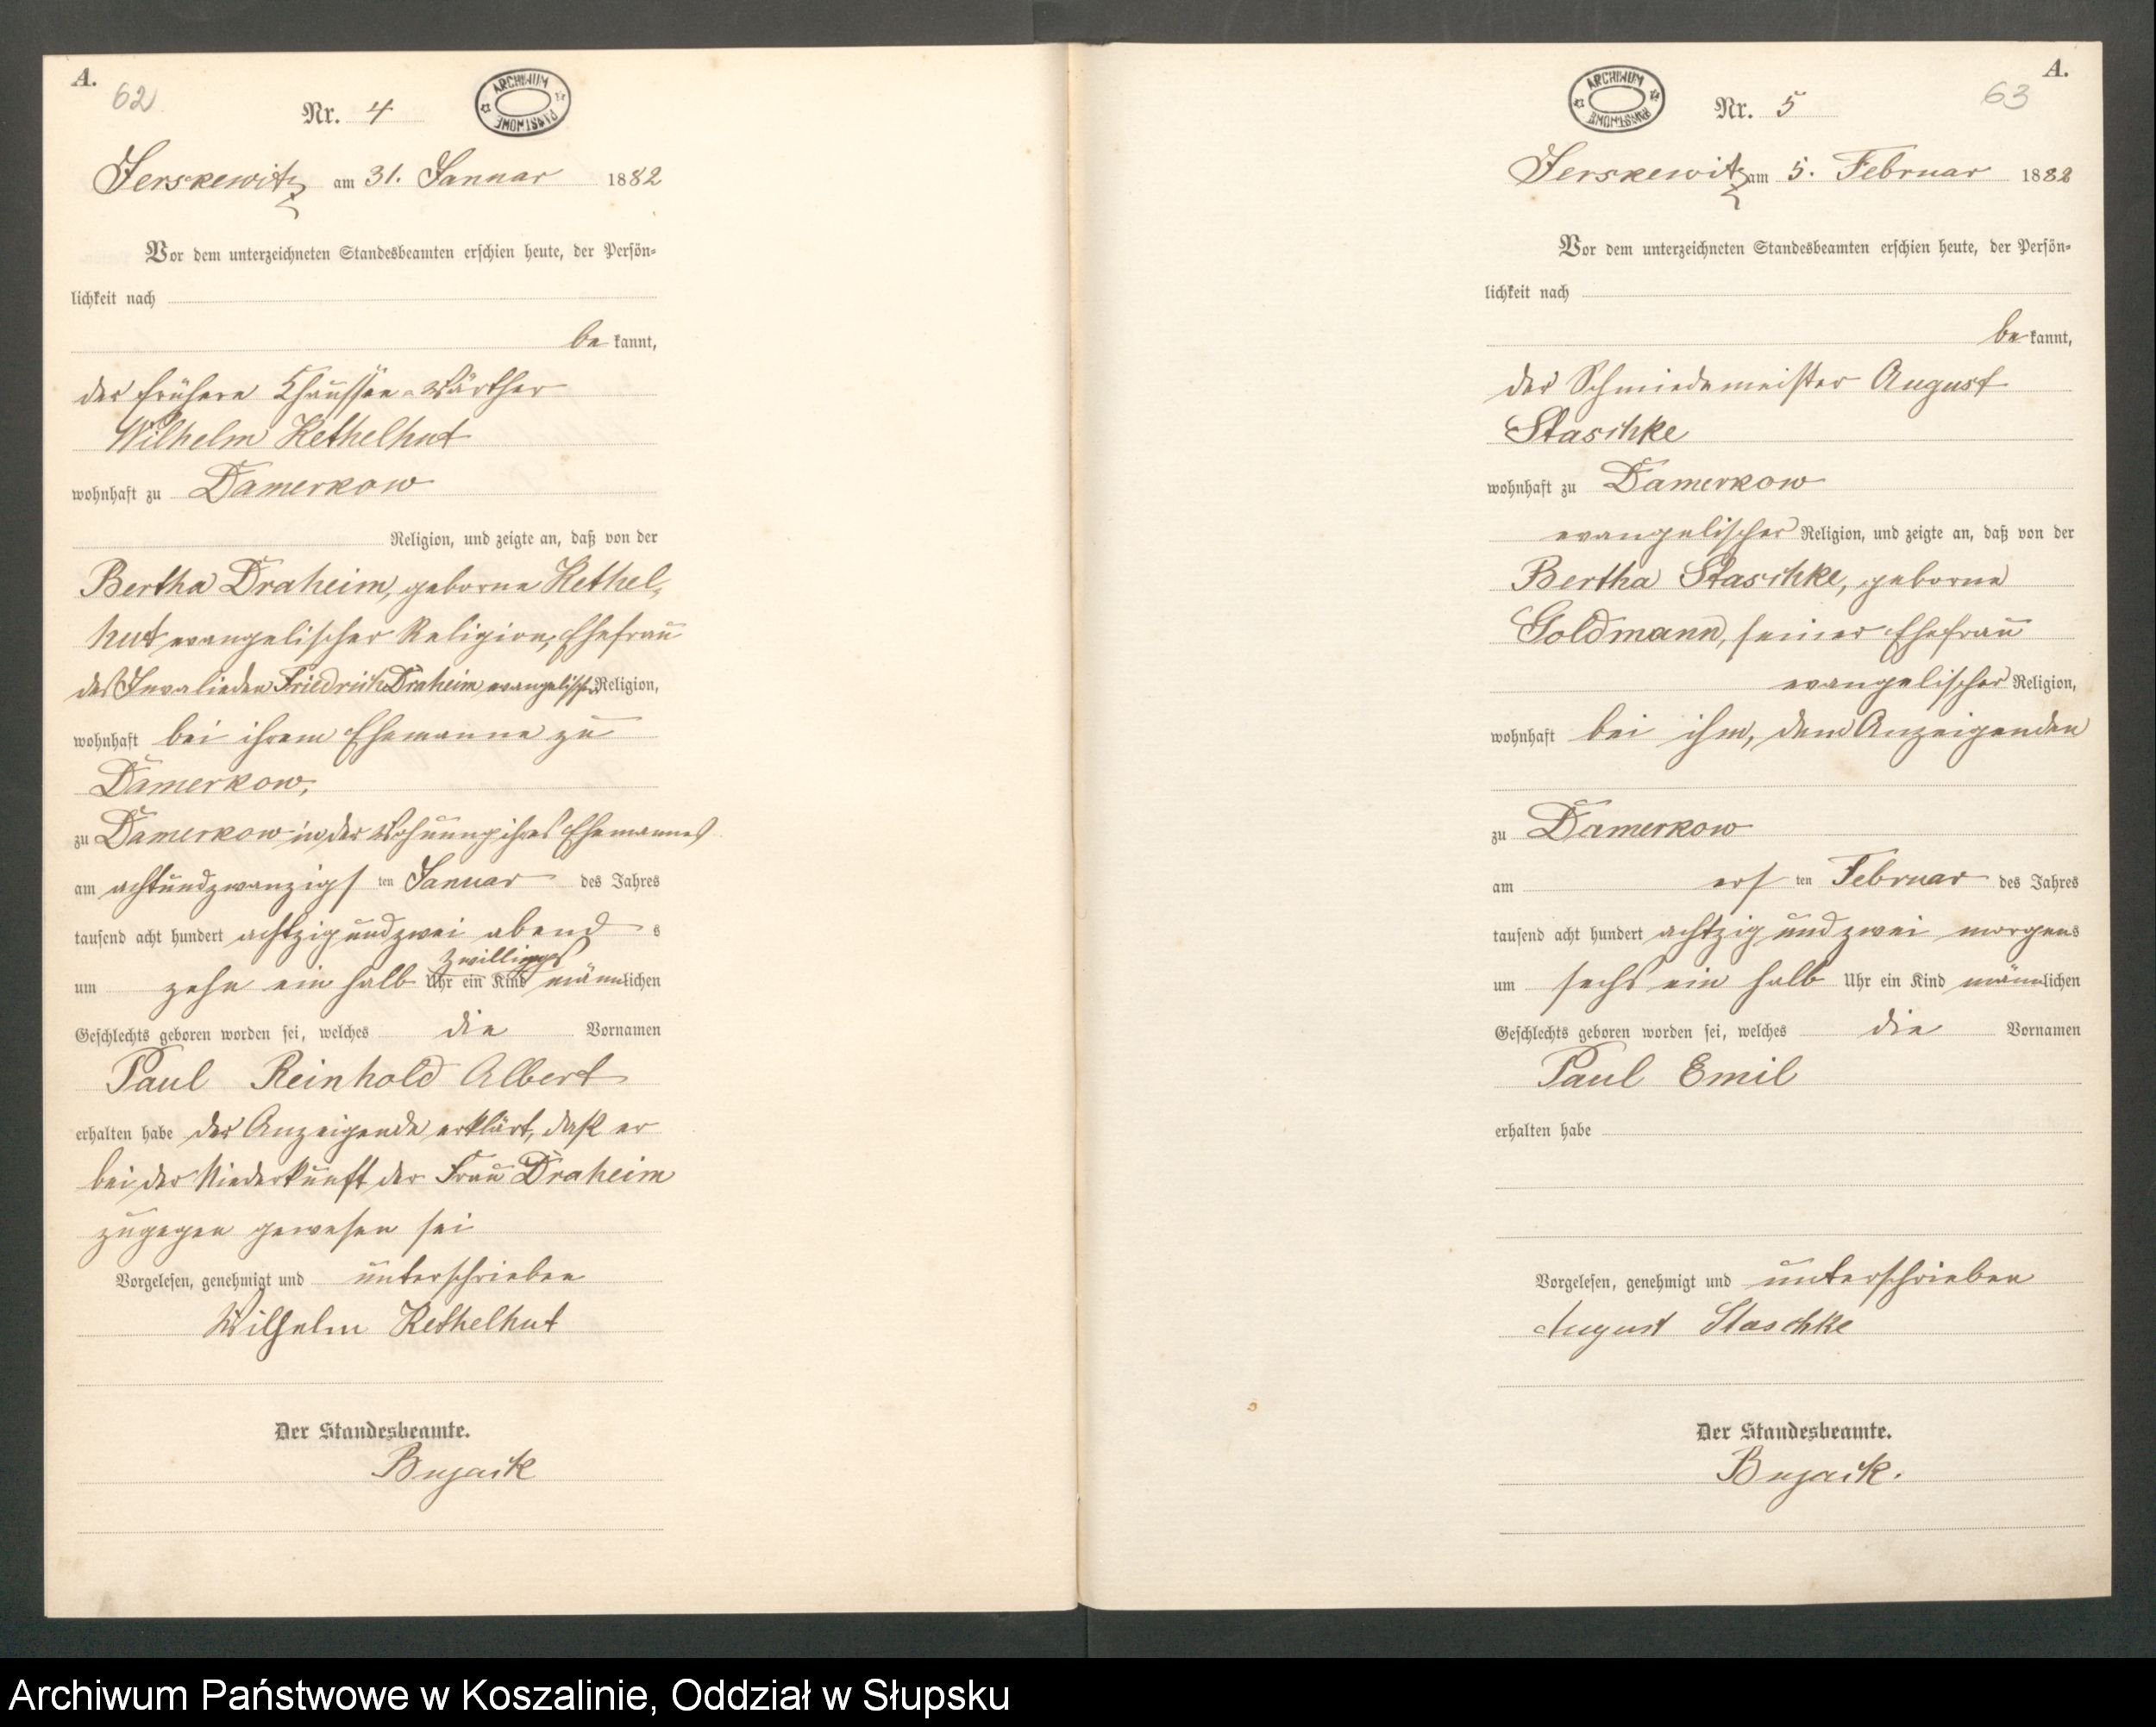 A.
62
Nr. 4
ARCHIWUM PAŃSTWOWE
Jerskewitz am 31. Januar 1882
Vor dem unterzeichneten Standesbeamten erschien heute, der Persön-
lichkeit nach
be kannt,
der frühere Chaussee-Wärther
Wilhelm Kethelhut
wohnhaft zu Damerkow
Religion, und zeigte an, daß von der
Bertha Draheim, geborne Kethel-
hut evangelischer Religion, Ehefrau
des Invalieden Friedrich Draheim evangelischer Religion,
wohnhaft bei ihrem Ehemanne zu
Damerkow,
zu Damerkow in der Wohnung ihres Ehemannes
am achtundzwanzigs ten Januar des Jahres
tausend acht hundert achtzig und zwei abend s
Zwillinges
um zehn ein halb Uhr ein Kind männlichen
Geschlechts geboren worden sei, welches die Vornamen
Paul Reinhold Albert
erhalten habe der Anzeigende erklärt, daß er
bei der Niederkunft der Frau Draheim
zugegen gewesen sei
Vorgelesen, genehmigt und unterschrieben
Wilhelm Kethelhut
Der Standesbeamte.
Bujack
A.
63
ARCHIWUM PAŃSTWOWE
Nr. 5
Jerskewitz am 5. Februar 1882
Vor dem unterzeichneten Standesbeamten erschien heute, der Persön-
lichkeit nach
be kannt,
der Schmiedemeister August
Staschke
wohnhaft zu Damerkow
evangelischer Religion, und zeigte an, daß von der
Bertha Staschke, geborne
Goldmann, seiner Ehefrau
evangelischer Religion,
wohnhaft bei ihm, dem Anzeigenden
zu Damerkow
am ers ten Februar des Jahres
tausend acht hundert achtzig und zwei morgens
um sechs ein halb Uhr ein Kind männlichen
Geschlechts geboren worden sei, welches die Vornamen
Paul Emil
erhalten habe
Vorgelesen, genehmigt und unterschrieben
August Staschke
Der Standesbeamte.
Bujack.
Archiwum Państwowe w Koszalinie, Oddział w Słupsku